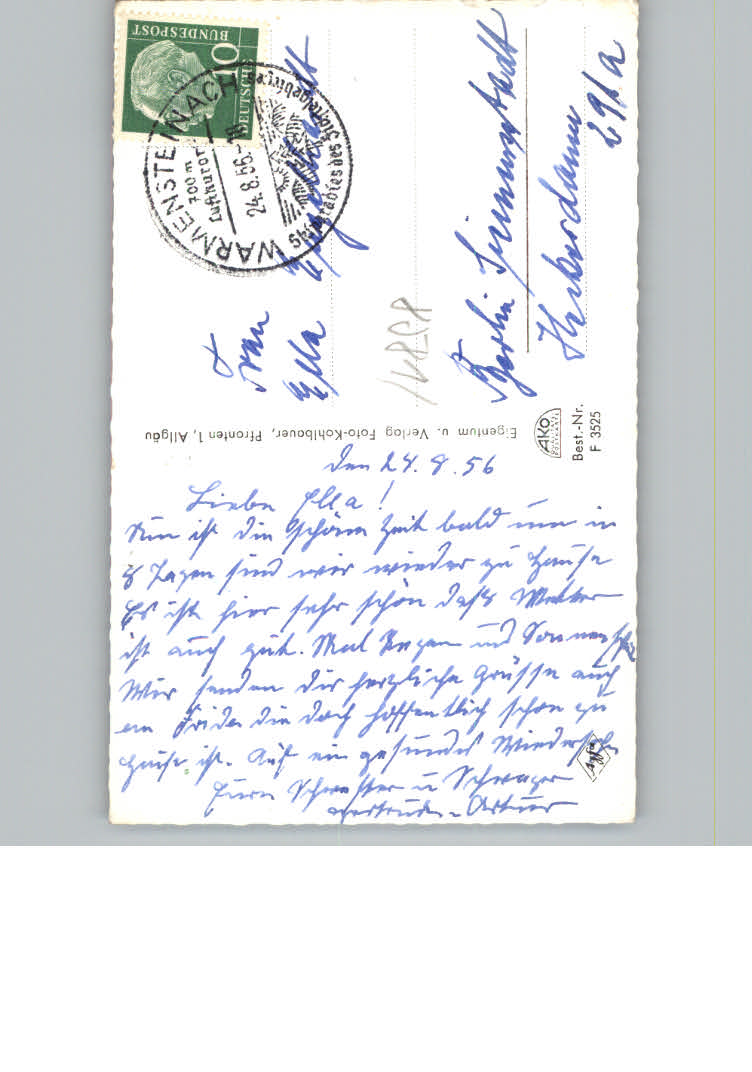 den 24.8.56
Liebe Ella!
Nun ist die schöne Zeit bald um in
8 Tagen sind wir wieder zu Hause
Es ist hier sehr schön dass Wetter
ist auch gut. Mal Regen und Sonnenschein
Wir senden dir herzliche Grüsse auch
an Frida die doch hoffentlich schon zu
Hause ist. Auf ein gesundes Wiedersehn
Eure Schwester u Schwager
Gertrud u Artur
Frau
Ella
Berlin Siemensstadt
Heckerdamm
291a
BUNDESPOST
10
DEUTSCHE
WARMENSTEINACH
700 m
Luftkurort
24.8.56
Skiparadies des Fichtelgebirges
Eigentum u. Verlag Foto-Kohlbauer, Pfronten 1, Allgäu
AKO
Best.-Nr.
F 3525
Agfa